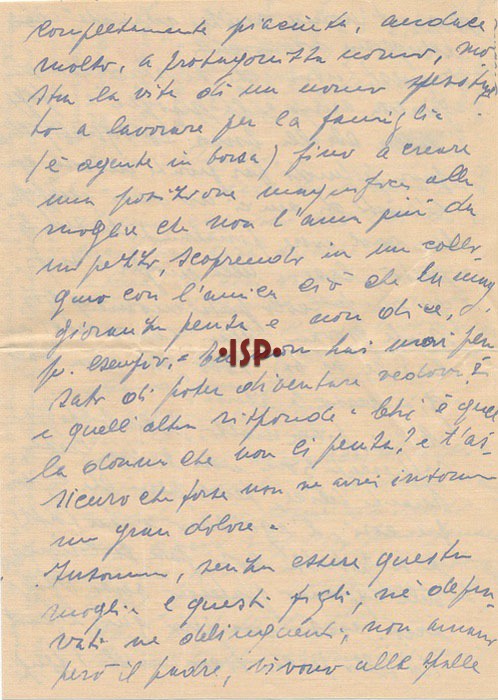 completamente piaciuta, audace
molto, a protagonista uomo, mo-
stra la vita di un uomo
to a lavorare per la famiglia
(è agente in borsa) fino a creare
una posizione magnifica alla
moglie che non l'ama più da
un pezzo, scoprendo in un collo-
quio con l'amica ciò che la mag
gioranza pensa e non dice,
p. esempio, " tu non hai mai pen
sato di poter diventare vedova? "
e quell'altra risponde " chi è quel
la donna che non ci pensa? e t'as-
sicuro che forse non ne avrei intorno
un gran dolore "
Insomma, senza essere questa
moglie e questi figli, nè depra
vati ne delinquenti, non amano
però il padre, vivono alle spalle
·ISP·